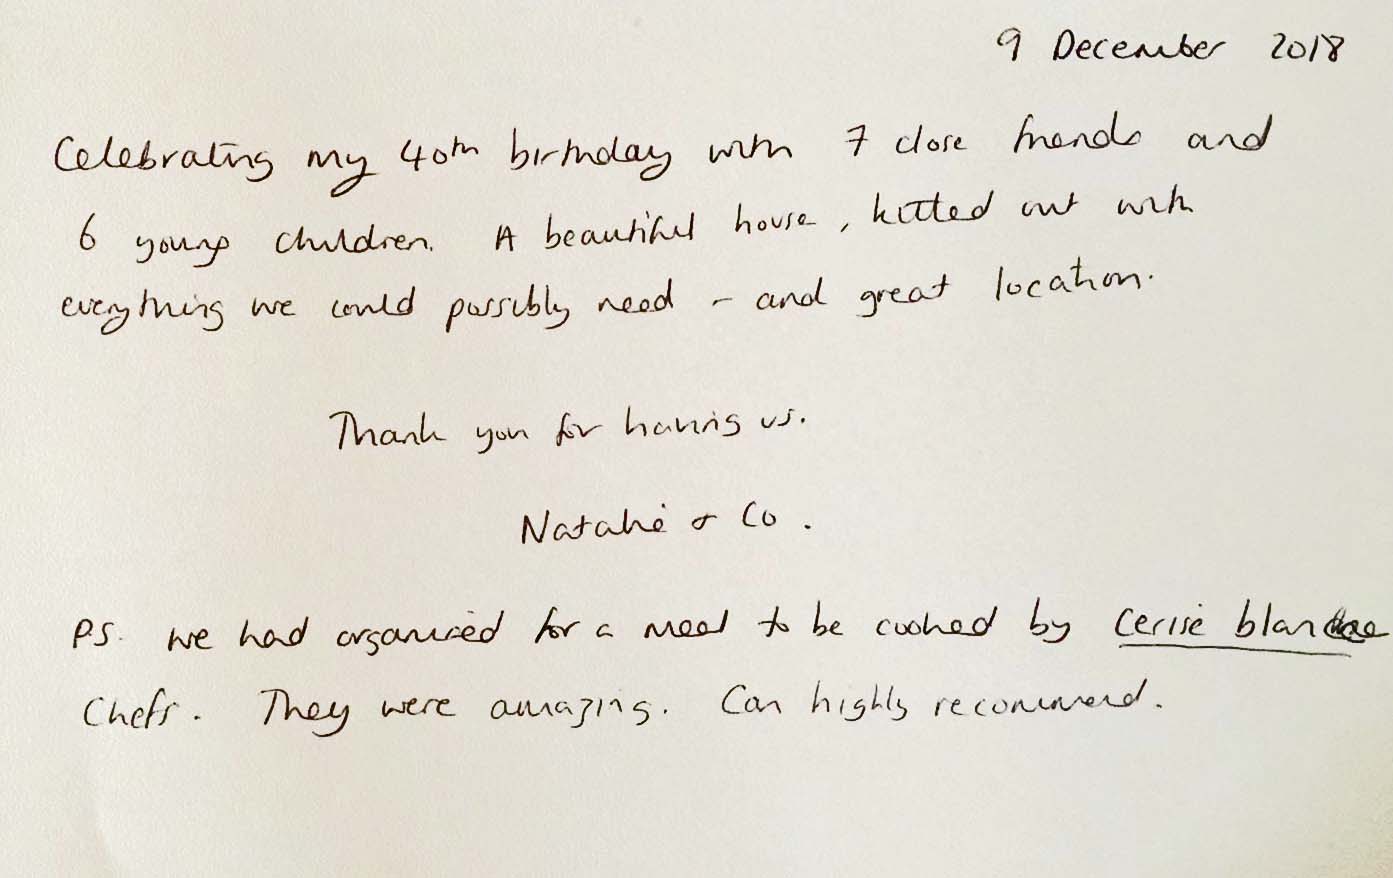 9 December 2018
Celebrating my 40th birthday with 7 close friends and
6 young children. A beautiful house, kitted out with
everything we could possibly need - and great location.
Thank you for having us.
Natalie & Co.
P.S. We had organised for a meal to be cooked by Cerise blanche
Chefs. They were amazing. Can highly recommend.